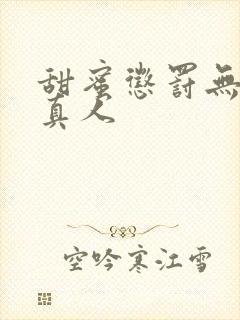 甜蜜懲罰無
真人
空吟寒江雪